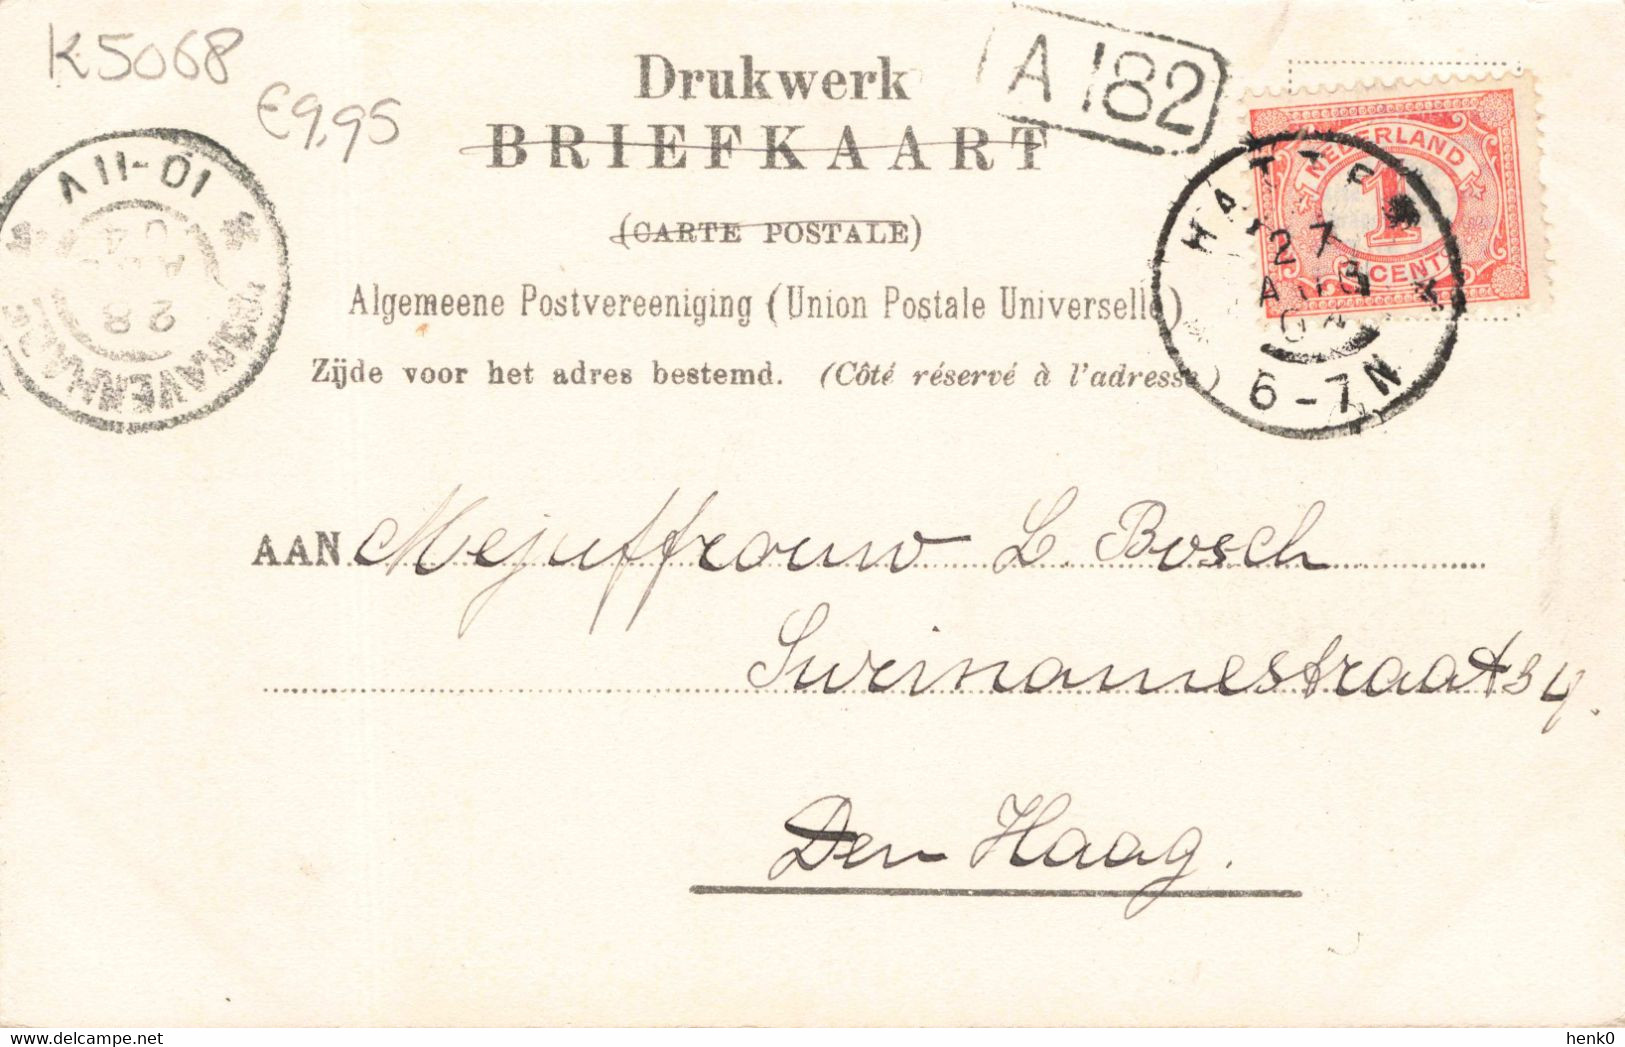 K5068
€9,95
A 182
Drukwerk
BRIEFKAART
(CARTE POSTALE)
Algemeene Postvereeniging (Union Postale Universelle)
Zijde voor het adres bestemd. (Côté réservé à l'adresse)
NEDERLAND
1
CENT
27
AUG
04
6-7N
10-11V
28
04
AAN Mejuffrouw L. Bosch
Surinamestraat 34.
Den Haag.
henk0